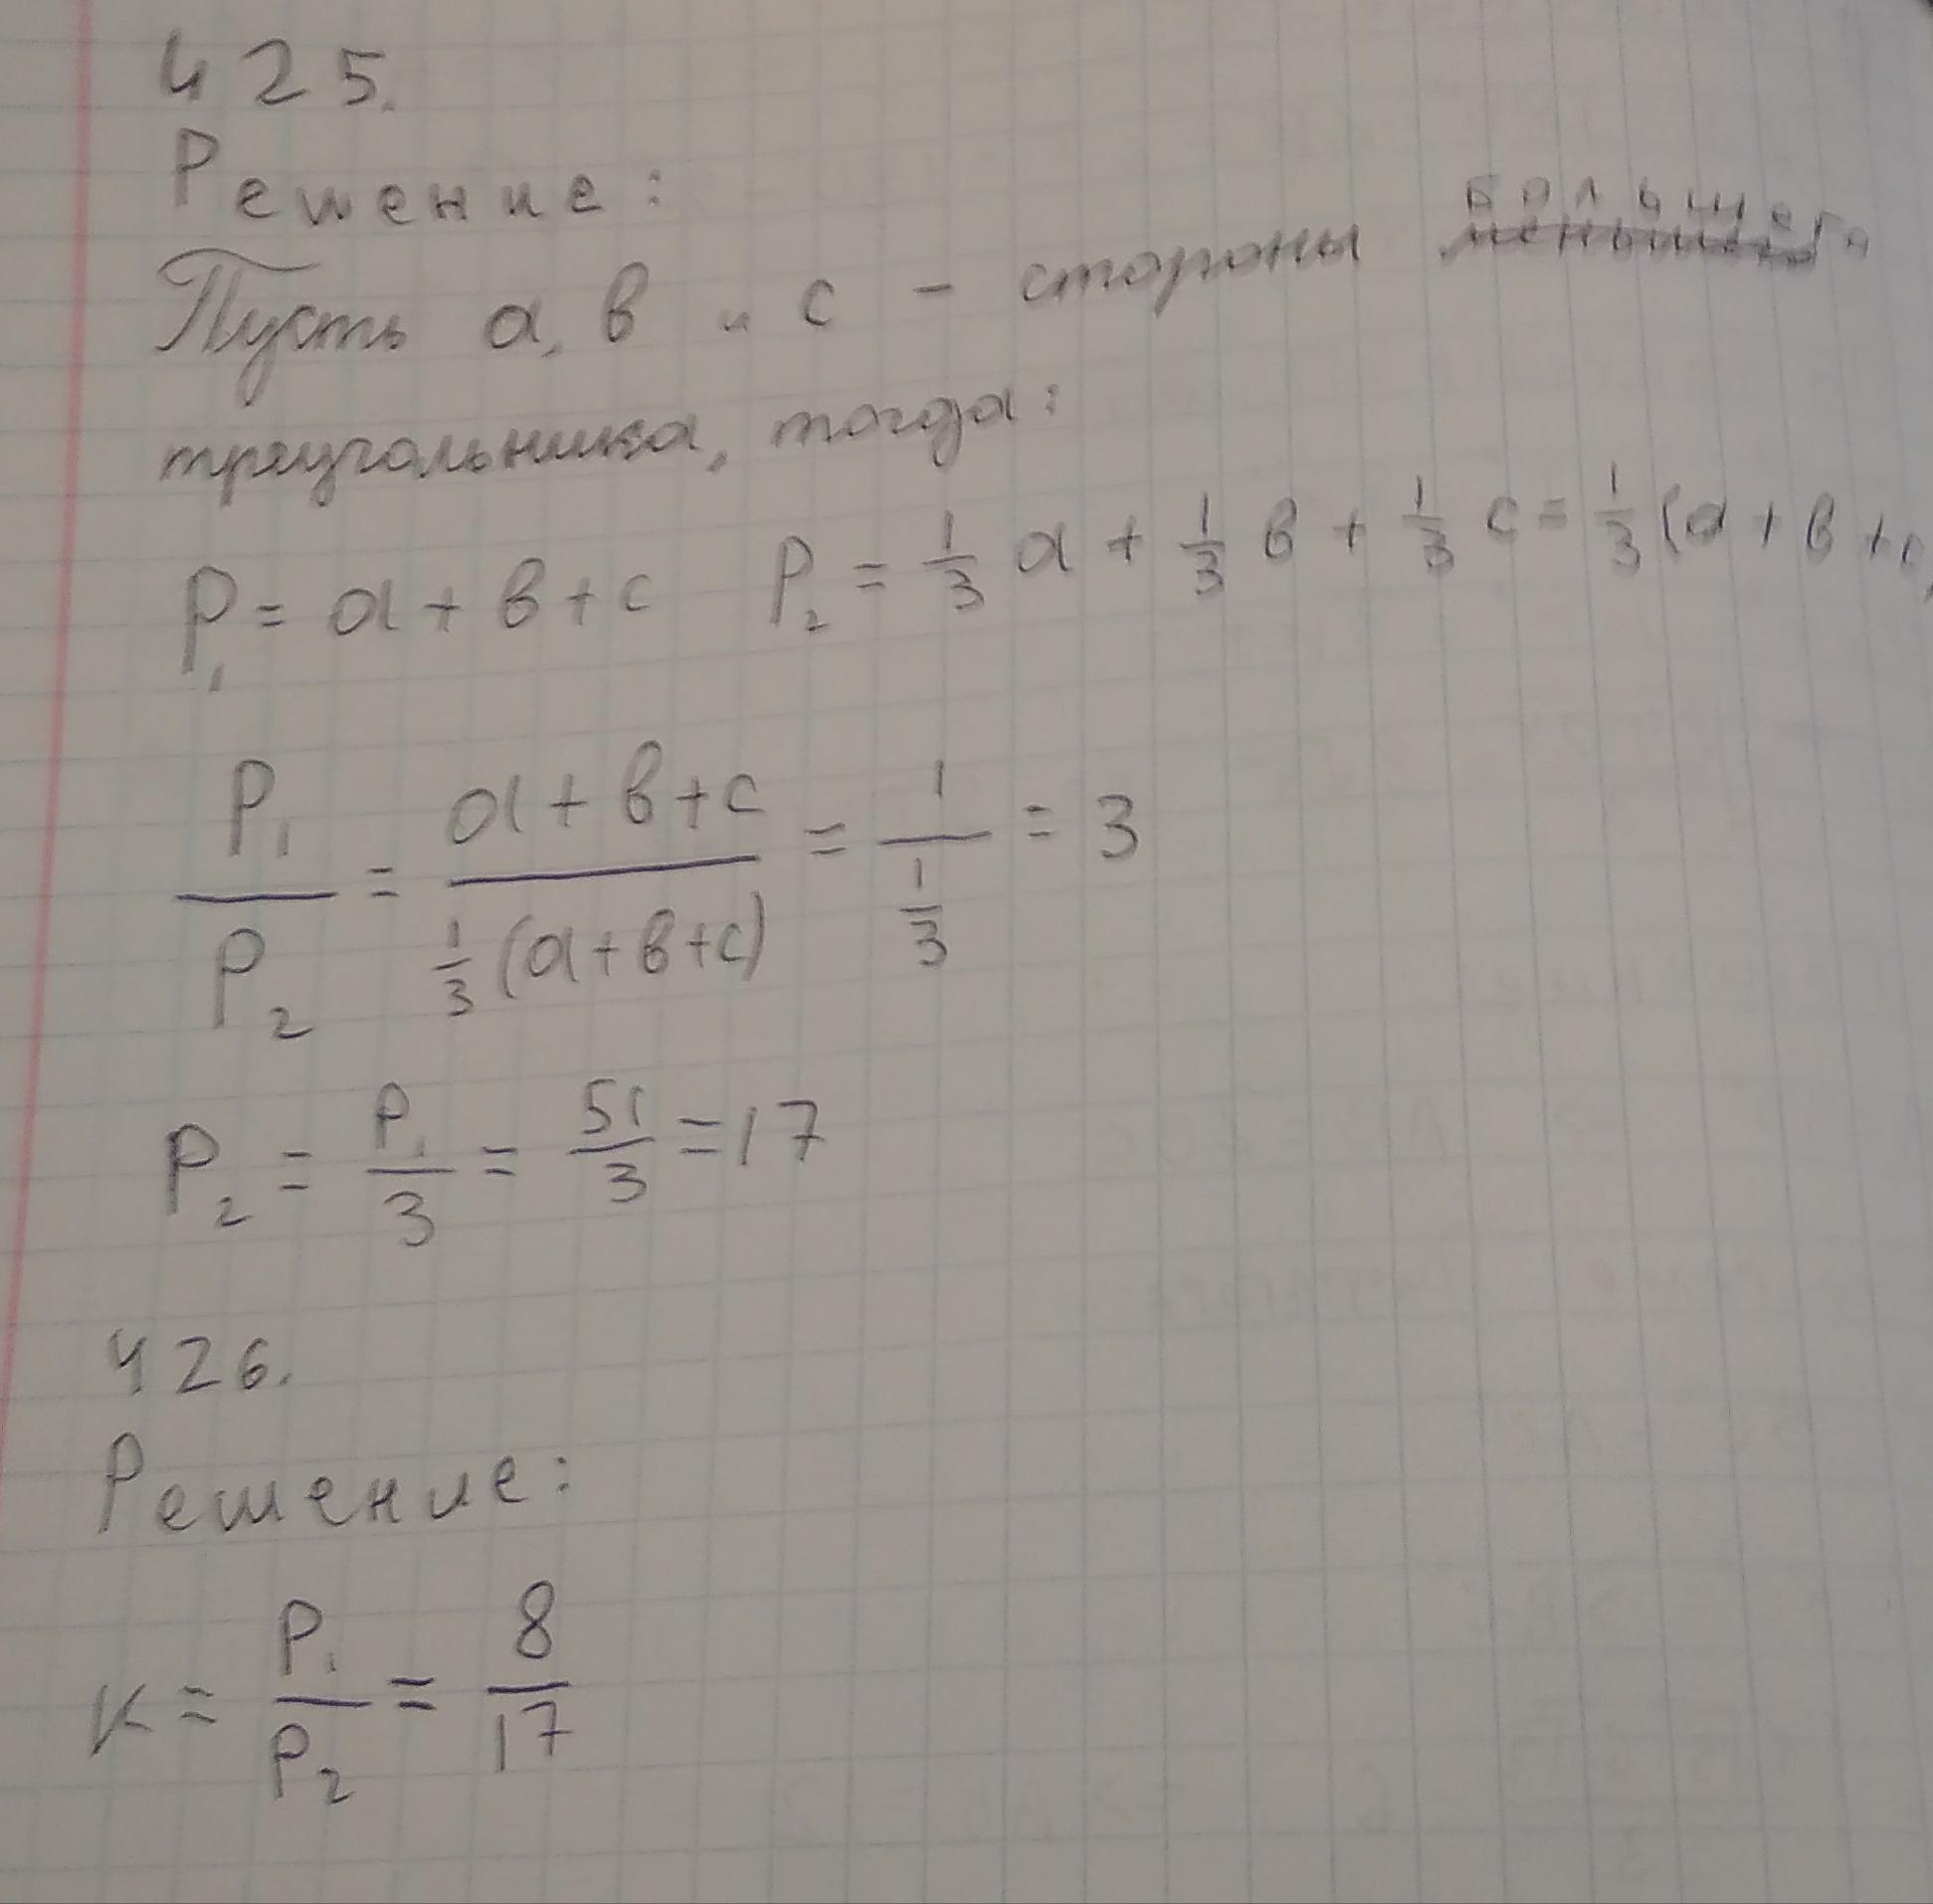 425.
Решение:
Пусть a, b и c - стороны большего
треугольника, тогда:
P₁ = a + b + c P₂ = 1/3 a + 1/3 b + 1/3 c = 1/3 (a + b + c)
P₁/P₂ = (a + b + c)/(1/3 (a + b + c)) = 1/(1/3) = 3
P₂ = P₁/3 = 51/3 = 17
426.
Решение:
K = P₁/P₂ = 8/17